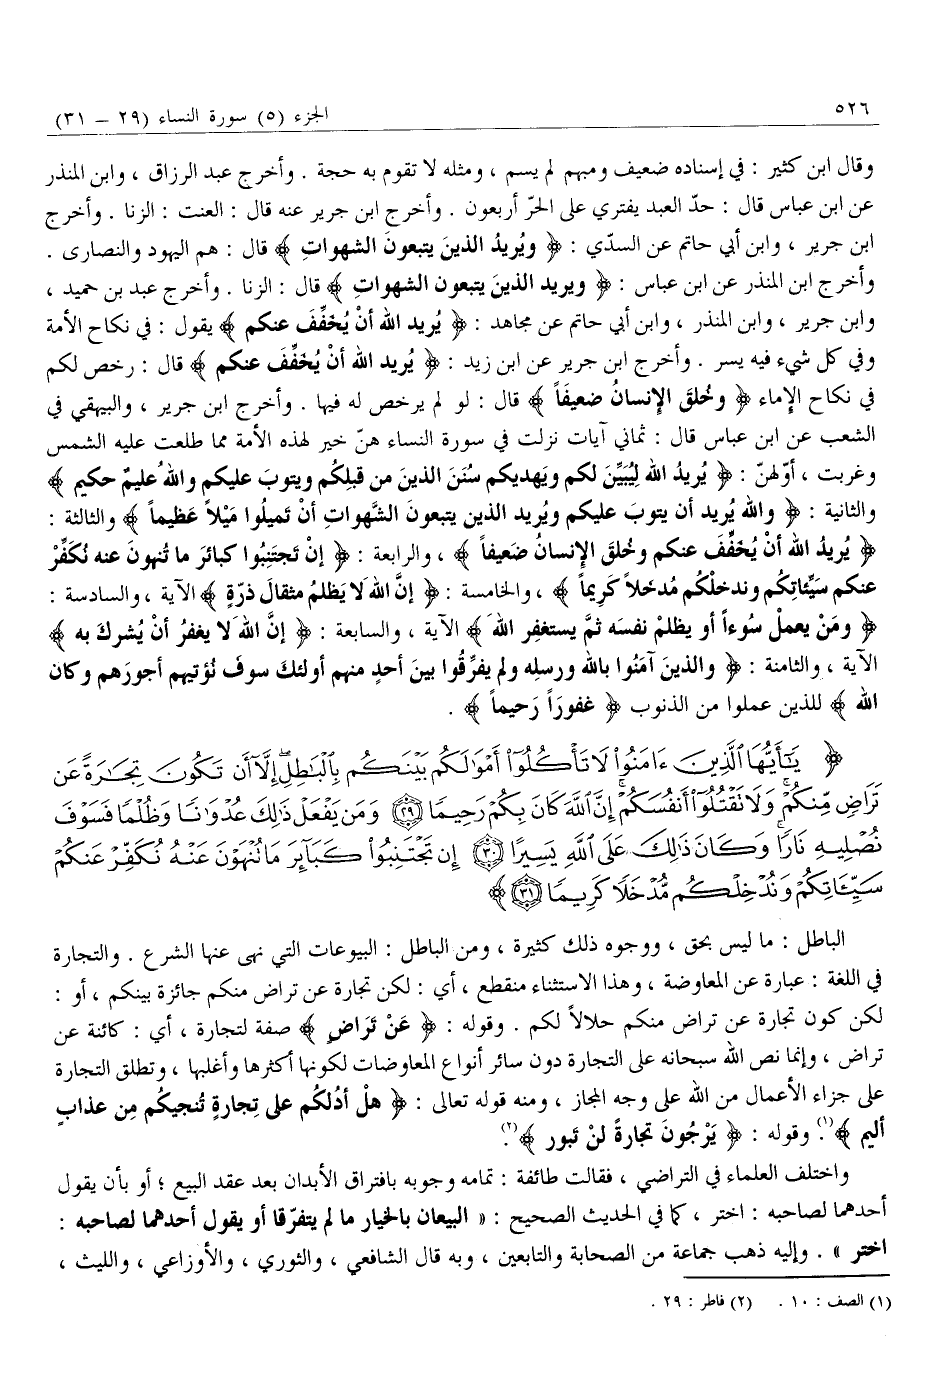 ٥٢٦
الجزء (٥) سورة النساء (٢٩ – ٣١)
وقال ابن كثير : في إسناده ضعيف ومبهم لم يسم ، ومثله لا تقوم به حجة . وأخرج عبد الرزاق ، وابن المنذر
عن ابن عباس قال : حدّ العبد يفتري على الحرّ أربعون . وأخرج ابن جرير عنه قال : العنت : الزنا . وأخرج
ابن جرير ، وابن أبي حاتم عن السدّي : ﴿ ويُريدُ الذينَ يتبعونَ الشهواتِ ﴾ قال : هم اليهود والنصارى .
وأخرج ابن المنذر عن ابن عباس : ﴿ ويريد الذينَ يتبعون الشهواتِ ﴾ قال : الزنا . وأخرج عبد بن حميد ،
وابن جرير ، وابن المنذر ، وابن أبي حاتم عن مجاهد : ﴿ يُريد الله أنْ يُخفِّفَ عنكم ﴾ يقول : في نكاح الأمة
وفي كل شيء فيه يسر . وأخرج ابن جرير عن ابن زيد : ﴿ يُريد الله أنْ يُخفِّفَ عنكم ﴾ قال : رخص لكم
في نكاح الإماء ﴿ وخُلقَ الإنسانُ ضعيفاً ﴾ قال : لو لم يرخص له فيها . وأخرج ابن جرير ، والبيهقي في
الشعب عن ابن عباس قال : ثماني آيات نزلت في سورة النساء هنّ خير لهذه الأمة مما طلعت عليه الشمس
وغربت ، أوّلهنّ : ﴿ يُريدُ الله لِيُبَيِّنَ لكم ويَهديكم سُنَنَ الذينَ من قبلِكُم ويتوبَ عليكم واللهُ عليمٌ حكيم ﴾
والثانية : ﴿ والله يُريد أن يتوبَ عليكم ويُريد الذين يتبعونَ الشَّهواتِ أنْ تَميلُوا مَيْلاً عَظيماً ﴾ والثالثة :
﴿ يُريدُ الله أنْ يُخفِّفَ عنكم وخُلق الإنسانُ ضَعيفاً ﴾ ، والرابعة : ﴿ إنْ تَجتَنِبُوا كبائرَ ما تُنهونَ عنه نُكفِّرْ
عنكم سَيِّئاتِكُم وندخلْكُم مُدخلاً كَريماً ﴾ ، والخامسة : ﴿ إنَّ الله لا يَظلمُ مثقالَ ذرّةٍ ﴾ الآية ، والسادسة :
﴿ ومَنْ يعملْ سُوءاً أو يظلمْ نفسَه ثمَّ يستغفِر اللهَ ﴾ الآية ، والسابعة : ﴿ إنَّ اللهَ لا يغفرُ أنْ يُشركَ به ﴾
الآية ، والثامنة : ﴿ والذينَ آمَنُوا بالله ورسلِه ولم يفرِّقُوا بينَ أحدٍ منهم أولئكَ سوفَ نُؤتيهم أجورَهم وكان
الله ﴾ للذين عملوا من الذنوب ﴿ غفورَاً رَحيماً ﴾ .
﴿ يَـٰٓأَيُّهَا ٱلَّذِينَ ءَامَنُوا۟ لَا تَأْكُلُوٓا۟ أَمْوَٰلَكُم بَيْنَكُم بِٱلْبَـٰطِلِ إِلَّآ أَن تَكُونَ تِجَـٰرَةً عَن
تَرَاضٍ مِّنكُمْ ۚ وَلَا تَقْتُلُوٓا۟ أَنفُسَكُمْ ۚ إِنَّ ٱللَّهَ كَانَ بِكُمْ رَحِيمًا ﴿٢٩﴾ وَمَن يَفْعَلْ ذَٰلِكَ عُدْوَٰنًا وَظُلْمًا فَسَوْفَ
نُصْلِيهِ نَارًا ۚ وَكَانَ ذَٰلِكَ عَلَى ٱللَّهِ يَسِيرًا ﴿٣٠﴾ إِن تَجْتَنِبُوا۟ كَبَآئِرَ مَا تُنْهَوْنَ عَنْهُ نُكَفِّرْ عَنكُمْ
سَيِّـَٔاتِكُمْ وَنُدْخِلْكُم مُّدْخَلًا كَرِيمًا ﴿٣١﴾ ﴾
الباطل : ما ليس بحق ، ووجوه ذلك كثيرة ، ومن الباطل : البيوعات التي نهى عنها الشرع . والتجارة
في اللغة : عبارة عن المعاوضة ، وهذا الاستثناء منقطع ، أي : لكن تجارة عن تراض منكم جائزة بينكم ، أو :
لكن كون تجارة عن تراض منكم حلالاً لكم . وقوله : ﴿ عَنْ تَرَاضٍ ﴾ صفة لتجارة ، أي : كائنة عن
تراض ، وإنما نص الله سبحانه على التجارة دون سائر أنواع المعاوضات لكونها أكثرها وأغلبها ، وتطلق التجارة
على جزاء الأعمال من الله على وجه المجاز ، ومنه قوله تعالى : ﴿ هلْ أدُلكُم على تِجارةٍ تُنجيكُم مِن عذابٍ
أليم ﴾(١). وقوله : ﴿ يَرْجُونَ تجارةً لنْ تَبور ﴾(٢).
واختلف العلماء في التراضي ، فقالت طائفة : تمامه وجوبه بافتراق الأبدان بعد عقد البيع ؛ أو بأن يقول
أحدهما لصاحبه : اختر ، كما في الحديث الصحيح : « البيعان بالخيار ما لم يتفرّقا أو يقول أحدهما لصاحبه :
اختر » . وإليه ذهب جماعة من الصحابة والتابعين ، وبه قال الشافعي ، والثوري ، والأوزاعي ، والليث ،
(١) الصف : ١٠ . (٢) فاطر : ٢٩ .